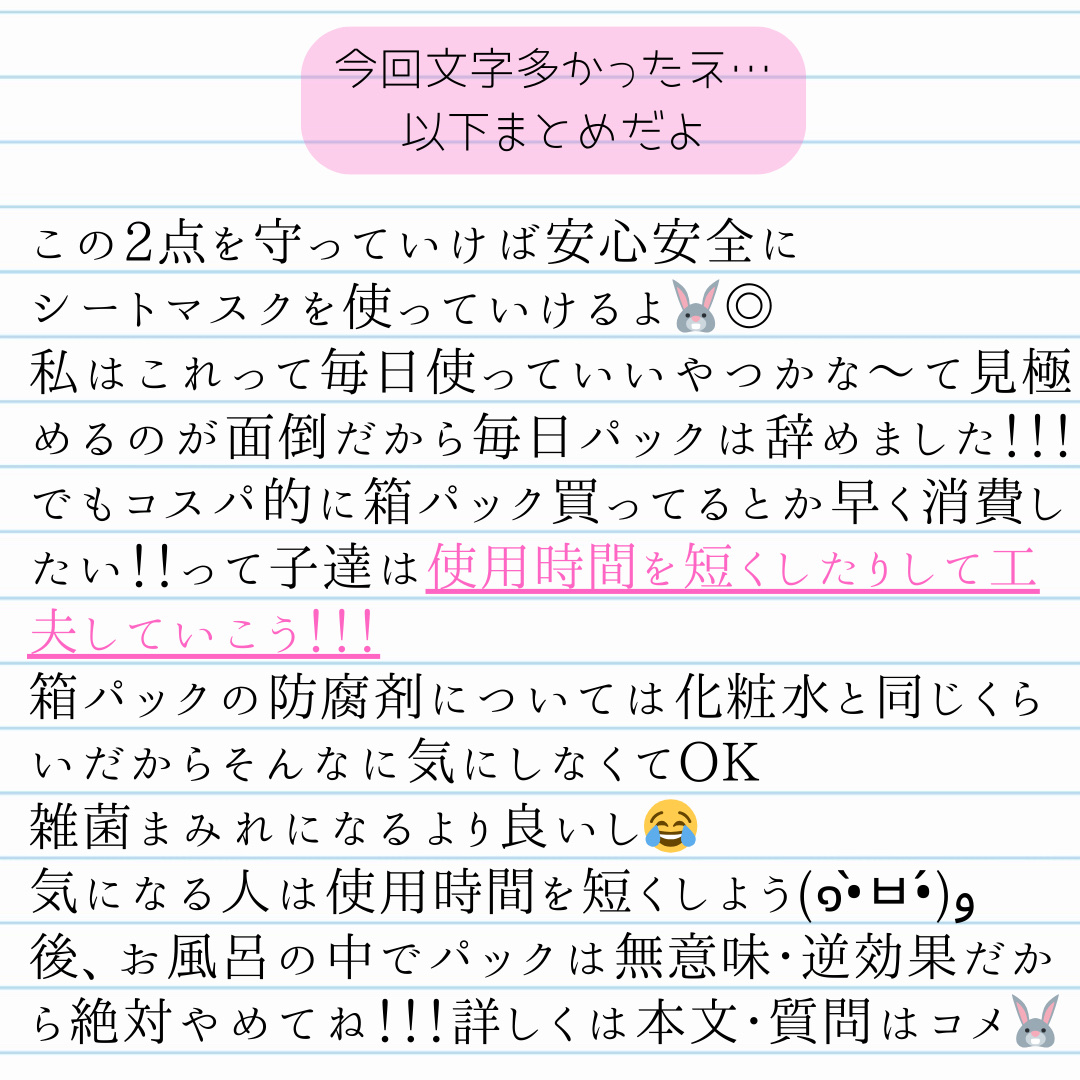 今回文字多かったネ…
以下まとめだよ
この2点を守っていけば安心安全に
シートマスクを使っていけるよ🐰◎
私はこれって毎日使っていいやつかな〜て見極
めるのが面倒だから毎日パックは辞めました!!!
でもコスパ的に箱パック買ってるとか早く消費し
たい!!って子達は使用時間を短くしたりして工
夫していこう!!!
箱パックの防腐剤については化粧水と同じくら
いだからそんなに気にしなくてOK
雑菌まみれになるより良いし😂
気になる人は使用時間を短くしよう(๑•̀ㅂ•́)و
後、お風呂の中でパックは無意味·逆効果だか
ら絶対やめてね!!!詳しくは本文·質問はコメ🐰